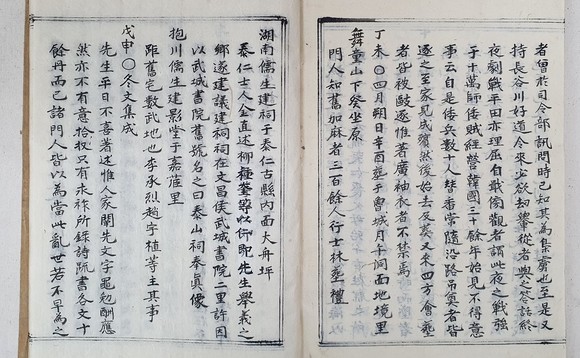 者曾於司令部訊問時已知其為集虜也至是又
持長谷川好道令來少欲却輦從者與之答話終
夜劇戰平田亦理屈自戢傍觀者謂此夜之戰強
于十萬師倭賊經營韓國三十餘年始見不得意
事云自是倭兵數十人替番常隨沿路吊奠者皆
逐之至家見成殯然後始去反葬又來四方會葬
者皆被毆逐惟著廣袖衣者不禁焉
丁未○四月朔日辛酉葬于魯城月午洞面地境里
舞童山下癸坐原
門人知舊加麻者三百餘人行士林葬禮
湖南儒生建祠于泰仁古縣內面大舟坪
泰仁士人金直述柳種奎等以何即先生舉義之
鄉遂建議建祠祠在文昌侯武城書院二里許因
以武城書院舊號名之曰泰山祠奉眞像
抱川儒生建影堂于嘉里
距舊宅數武地也李承烈趙宇植等主其事
戊申○冬文集成
先生平日不喜著述惟人家闡先文字黽勉酬應
然亦不有意拾收只有永祚所錄詩疏書各文十
餘冊而已諸門人皆以為當此亂世若不早為之